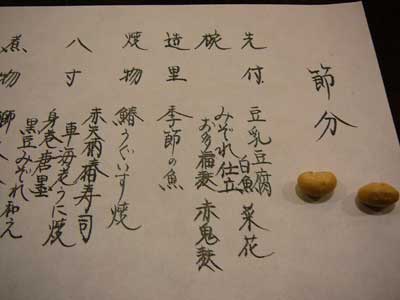 節分
先付 豆乳豆腐 菜花
白魚
椀 みぞれ仕立
お多福麩 赤鬼麩
造里 季節の魚
焼物 鰆うぐいす焼
八寸 赤矢柄椿寿司
車海老うに焼
身巻唐墨
黒豆みぞれ和え
煮物